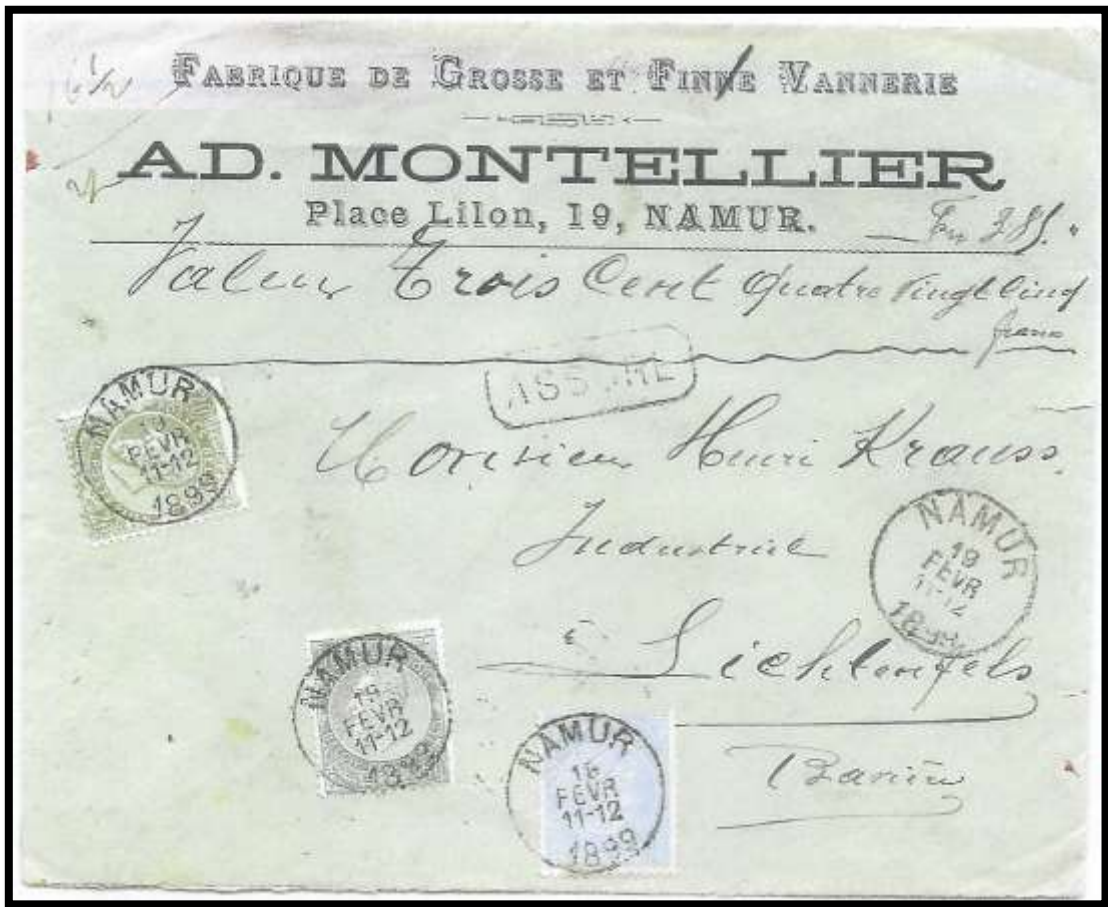 FABRIQUE DE GROSSE ET FINNE VANNERIE
AD. MONTELLIER
Place Lilon, 19, NAMUR.
Valeur Trois Cent Quatre Vingt Cinq
francs
Monsieur Henri Krauss
Industriel
à Lichtenfels
Bavière
NAMUR
19
FEVR
11-12
1899
NAMUR
19
FEVR
11-12
1899
NAMUR
19
FEVR
11-12
1899
NAMUR
FEVR
11-12
1899